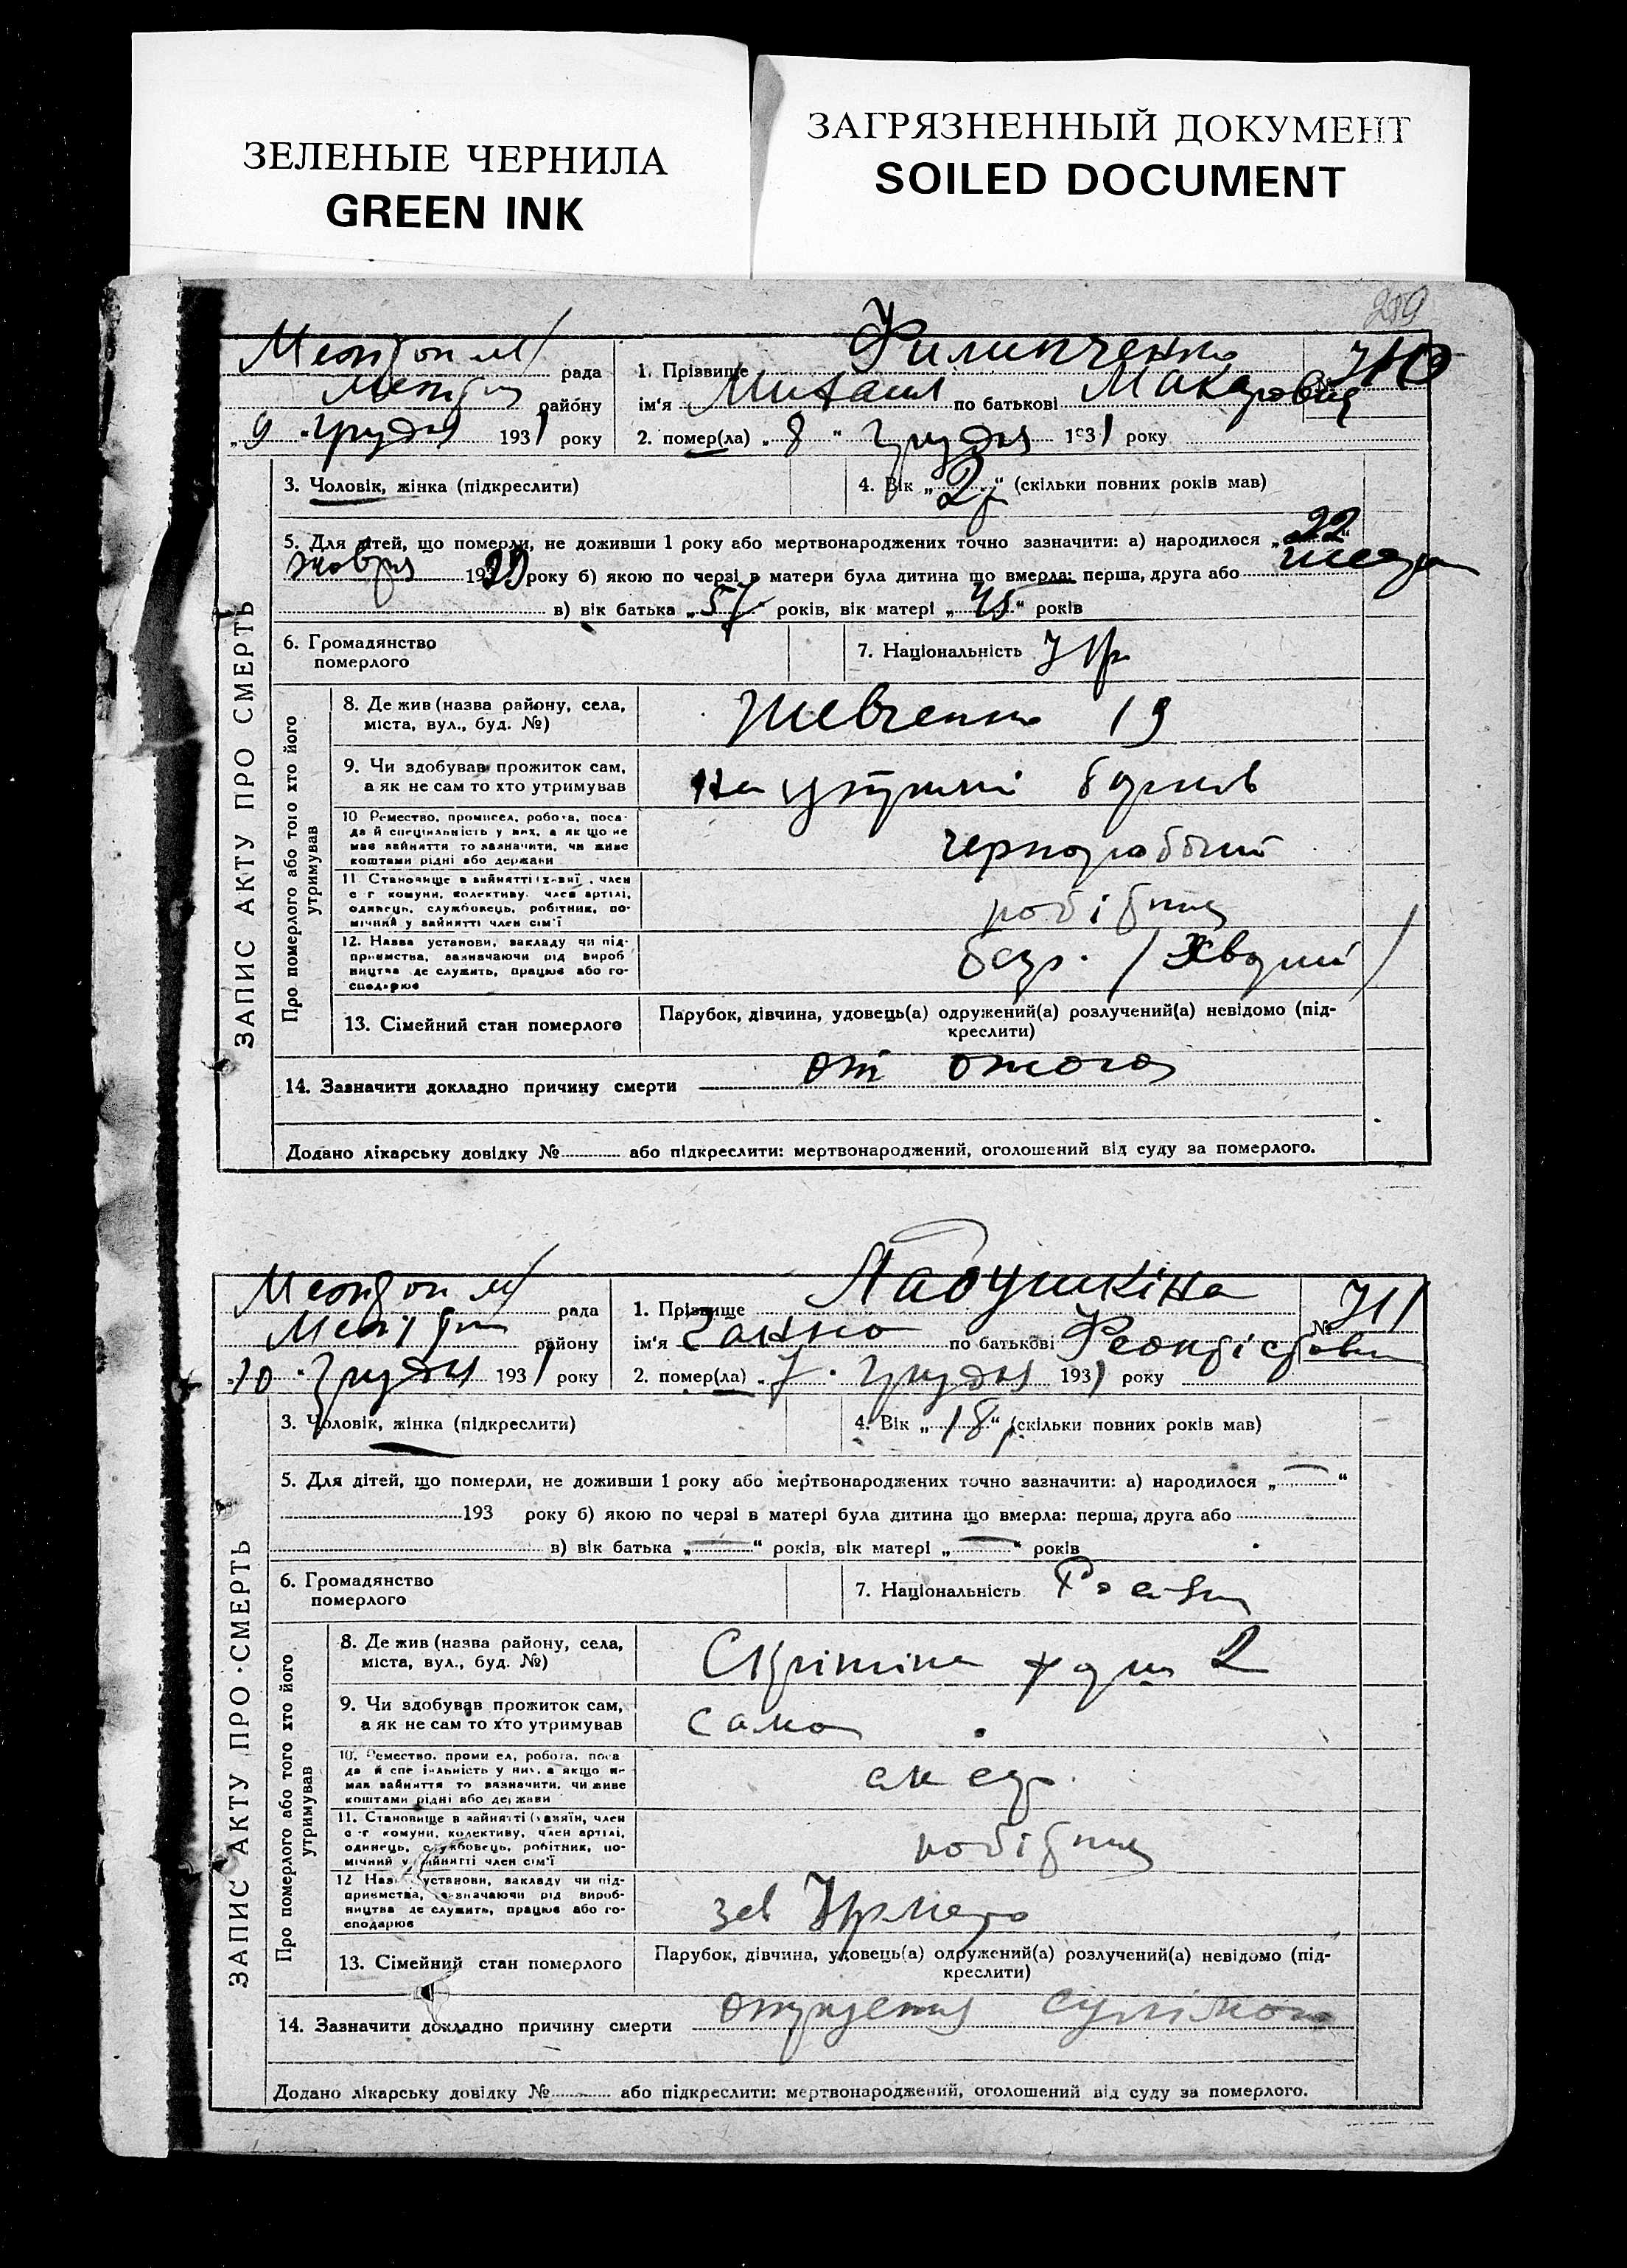 ЗЕЛЕНЫЕ ЧЕРНИЛА
GREEN INK
ЗАГРЯЗНЕННЫЙ ДОКУМЕНТ
SOILED DOCUMENT
209
рада
району
„ 9 “ грудня 1931 року
1. Прізвище Филипченко
№ 710
ім'я Михаил по батькові Макарович
2. помер(ла) „ 8 “ грудня 1931 року
ЗАПИС АКТУ ПРО СМЕРТЬ
3. Чоловік, жінка (підкреслити)
4. Вік „ 2 “ (скільки повних років мав)
5. Для дітей, що померли, не доживши 1 року або мертвонароджених точно зазначити: а) народилося „ 22 “
жовтня 1929 року б) якою по черзі в матери була дитина що вмерла: перша, друга або
в) вік батька „ 57 “ років, вік матері „ 45 “ років
6. Громадянство
померлого
7. Національність Укр
Про померлого або того хто його
утримував
8. Де жив (назва району, села,
міста, вул., буд. №)
Шевченко 19
9. Чи здобував прожиток сам,
а як не сам то хто утримував
на утримні батьків
10 Ремество, промисел, робота, поса-
да й спеціяльність у них, а як що не
має зайняття то зазначити, чи живе
коштами рідні або держави
чорноробочий
11. Становище в зайнятті (хазяї, член
с-г комуни, колективу, член артілі,
одинець, службовець, робітник, по-
мічний у зайнятті член сім'ї
робітник
12. Назва установи, закладу чи під-
приємства, зазначаючи рід вироб
ництва де служить, працює або го-
сподарює
13. Сімейний стан померлого
Парубок, дівчина, удовець(а) одружений(а) розлучений(а) невідомо (під-
креслити)
14. Зазначити докладно причину смерти
от ожога
Додано лікарську довідку № або підкреслити: мертвонароджений, оголошений від суду за померлого.
рада
району
„ 10 “ грудня 1931 року
1. Прізвище Ладушкіна
№ 711
ім'я по батькові
2. помер(ла) „ 7 “ грудня 1931 року
ЗАПИС АКТУ ПРО СМЕРТЬ
3. Чоловік, жінка (підкреслити)
4. Вік „ 18 “ (скільки повних років мав)
5. Для дітей, що померли, не доживши 1 року або мертвонароджених точно зазначити: а) народилося „ — “
193 року б) якою по черзі в матері була дитина що вмерла: перша, друга або
в) вік батька „ — “ років, вік матері „ — “ років
6. Громадянство
померлого
7. Національність
Про померлого або того хто його
утримував
8. Де жив (назва району, села,
міста, вул., буд. №)
2
9. Чи здобував прожиток сам,
а як не сам то хто утримував
сама
10. Ремество, промисел, робота, поса
да й спеціяльність у них, а якщо не
має зайняття то зазначити, чи живе
коштами рідні або держави
11. Становище в зайнятті (хазяїн, член
с-г комуни, колективу, член артілі,
одинець, службовець, робітник, по-
мічний у зайнятті член сім'ї
робітник
12 Назва установи, закладу чи під-
приємства, зазначаючи рід вироб-
ництва де служить, працює або го-
сподарює
13. Сімейний стан померлого
Парубок, дівчина, удовець(а) одружений(а) розлучений(а) невідомо (під-
креслити)
14. Зазначити докладно причину смерти
Додано лікарську довідку № або підкреслити: мертвонароджений, оголошений від суду за померлого.